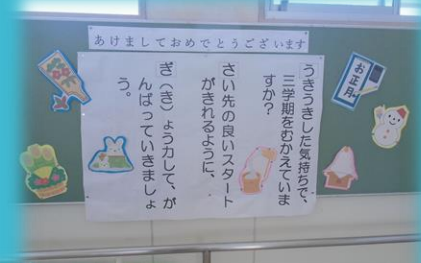 あけましておめでとうございます
うきうきした気持ちで、
三学期をむかえていま
すか?
さい先の良いスタート
がきれるように、
ぎ(き)ょう力して、が
んばっていきましょ
う。
お正月